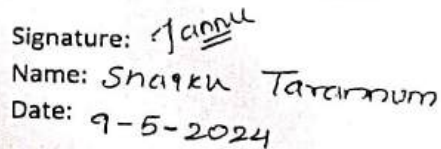 Signature: Tannu
Name: Shaikh Tarannum
Date: 9-5-2024